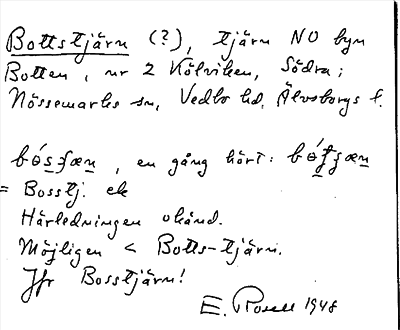 Bottstjärn (?), tjärn NO byn
Botten, nr 2 Kölviken, Södra;
Nössemarks sn, Vedbo hd, Älvsborgs l.
bós̲ʃæn̲, en gång hört: bó̲t̲ʃæn̲
= Bosstj. ek
Härledningen okänd.
Möjligen < Botts-tjärn.
Jfr Bosstjärn!
E. Rosell 1948